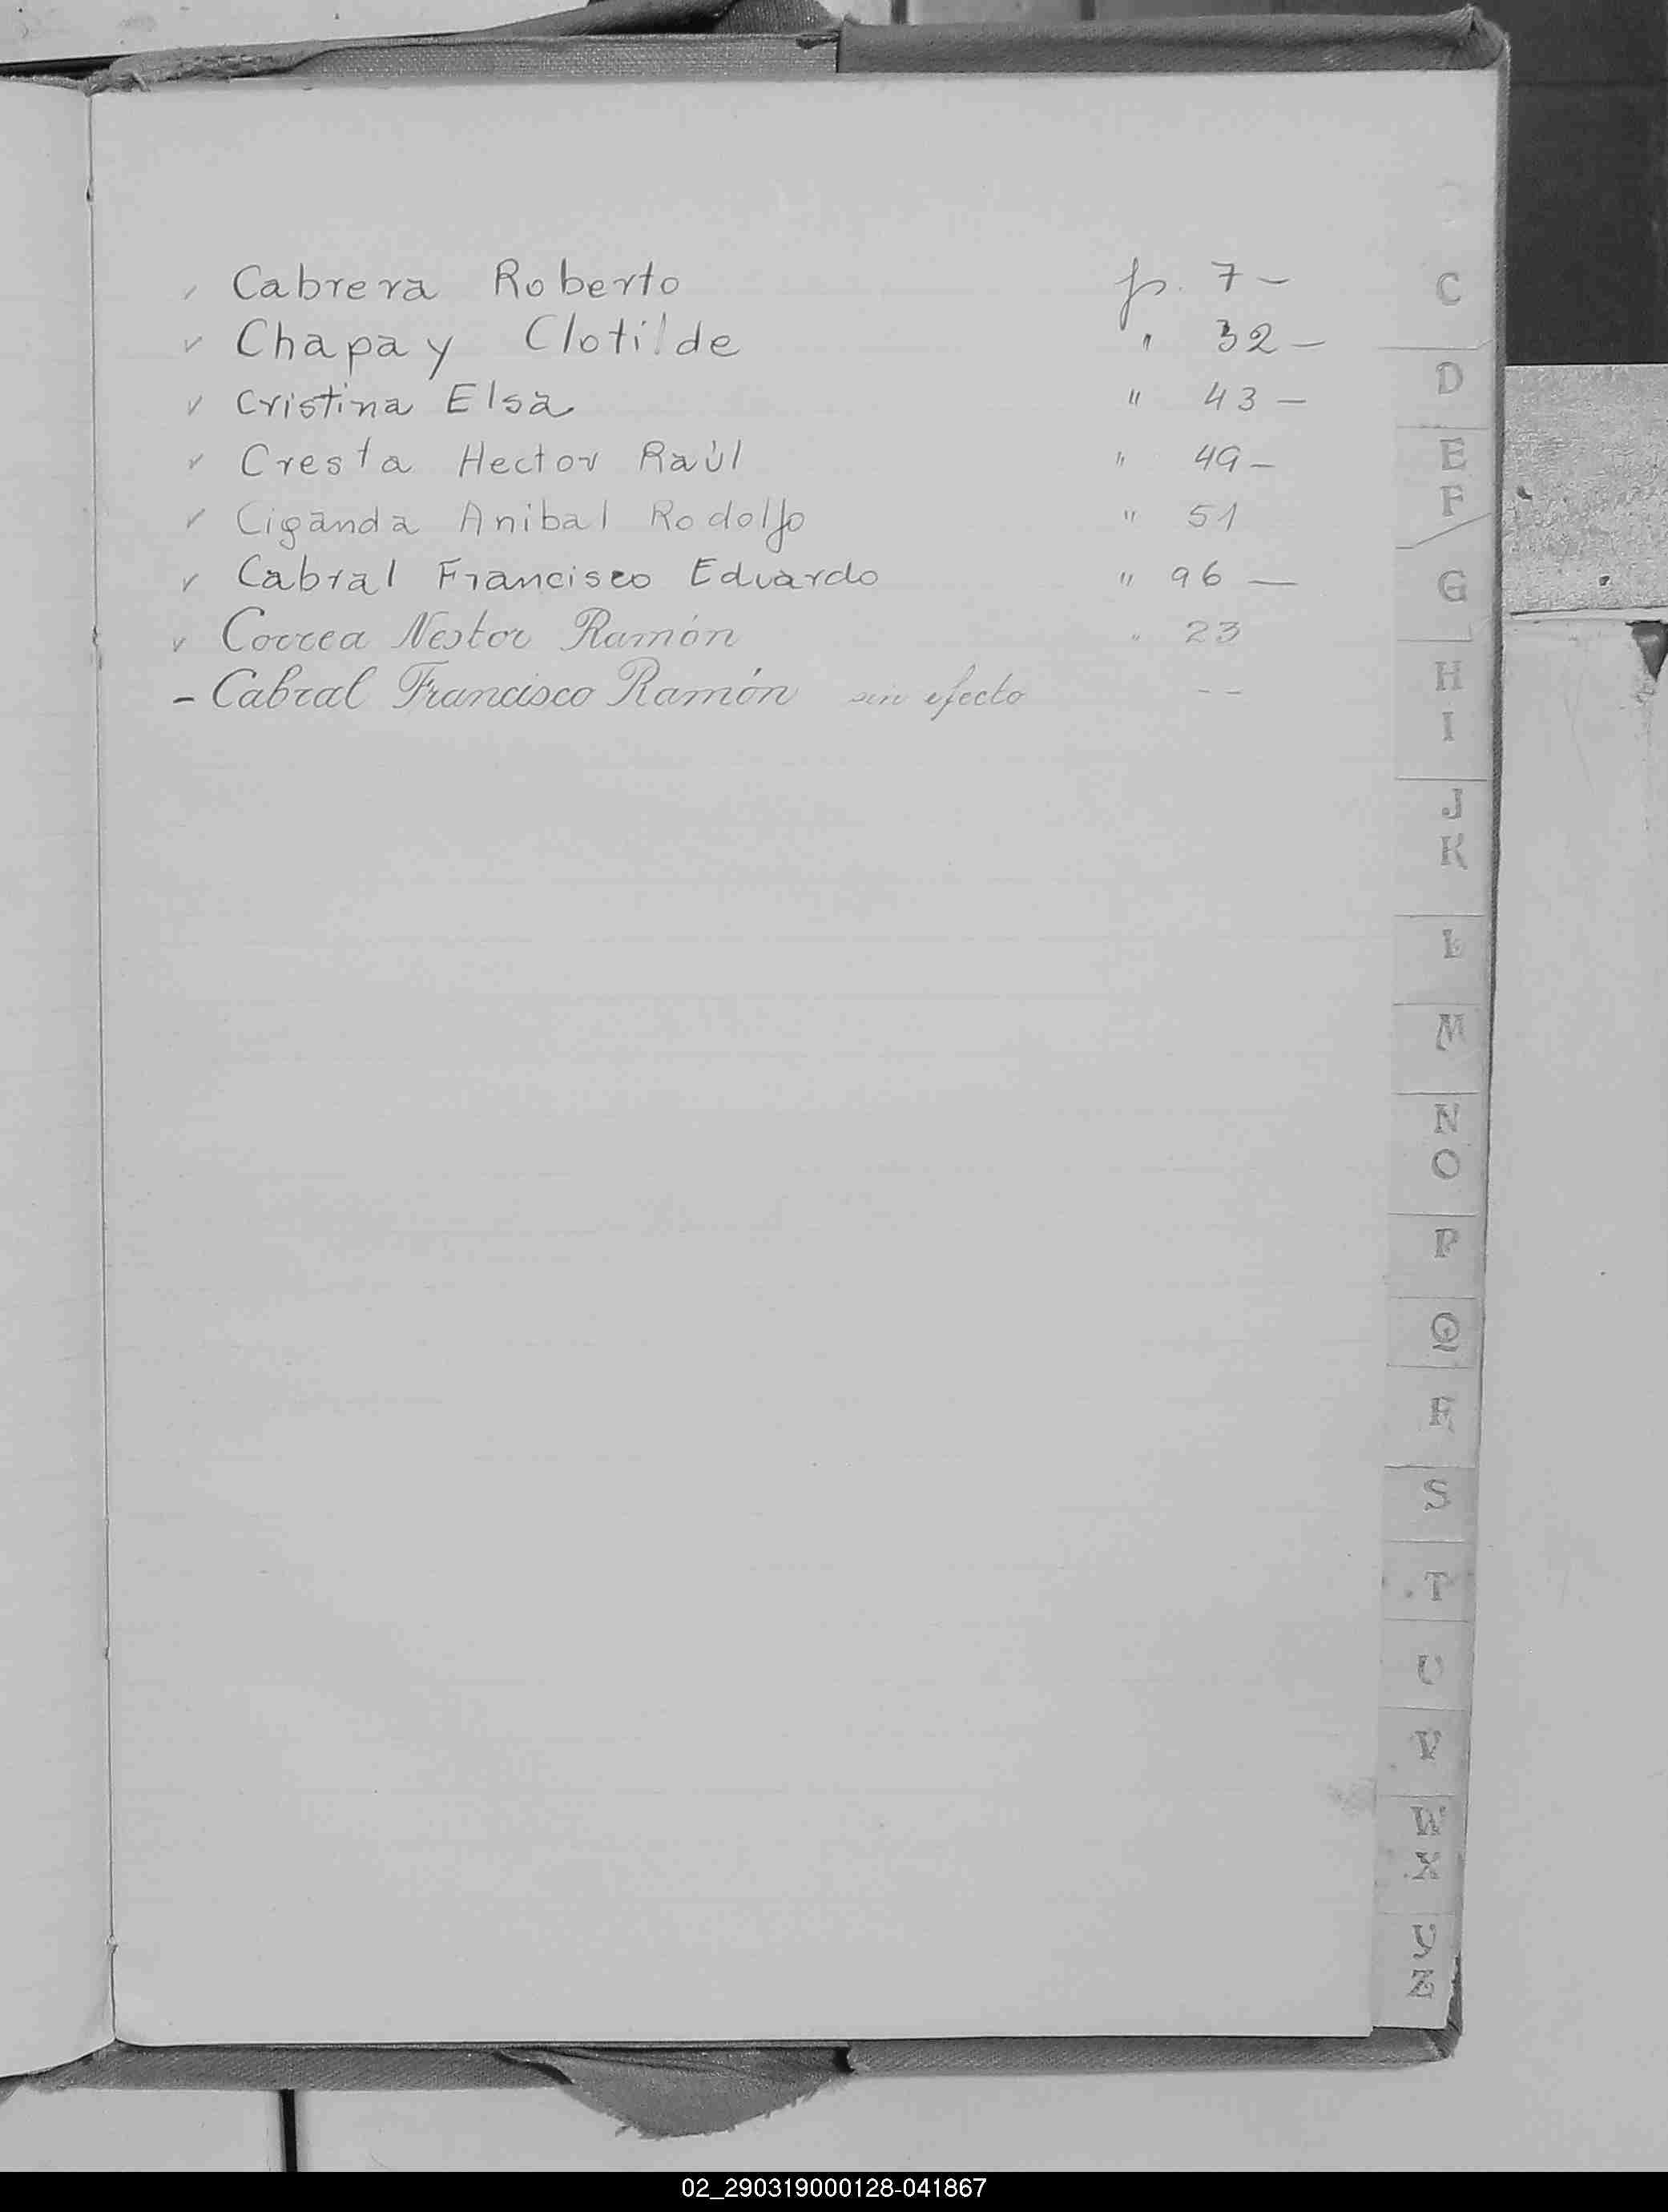 ✓ Cabrera Roberto p. 7 –
✓ Chapay Clotilde " 32 –
✓ Cristina Elsa " 43 –
✓ Cresta Hector Raúl " 49 –
✓ Ciganda Anibal Rodolfo " 51
✓ Cabral Francisco Eduardo " 96 —
✓ Correa Nestor Ramón " 23
– Cabral Francisco Ramón sin efecto – –
C
D
E
F
G
H
I
J
K
L
M
N
O
P
Q
R
S
T
U
V
W
X
Y
Z
02_290319000128-041867